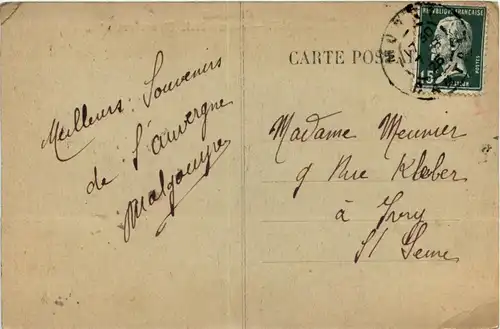 CARTE POSTALE
RÉPUBLIQUE FRANÇAISE
15
POSTES
Meilleurs Souvenirs
de l'auvergne
Malgouyre
Madame Meunier
9 Rue Kleber
à Ivry
S/ Seine